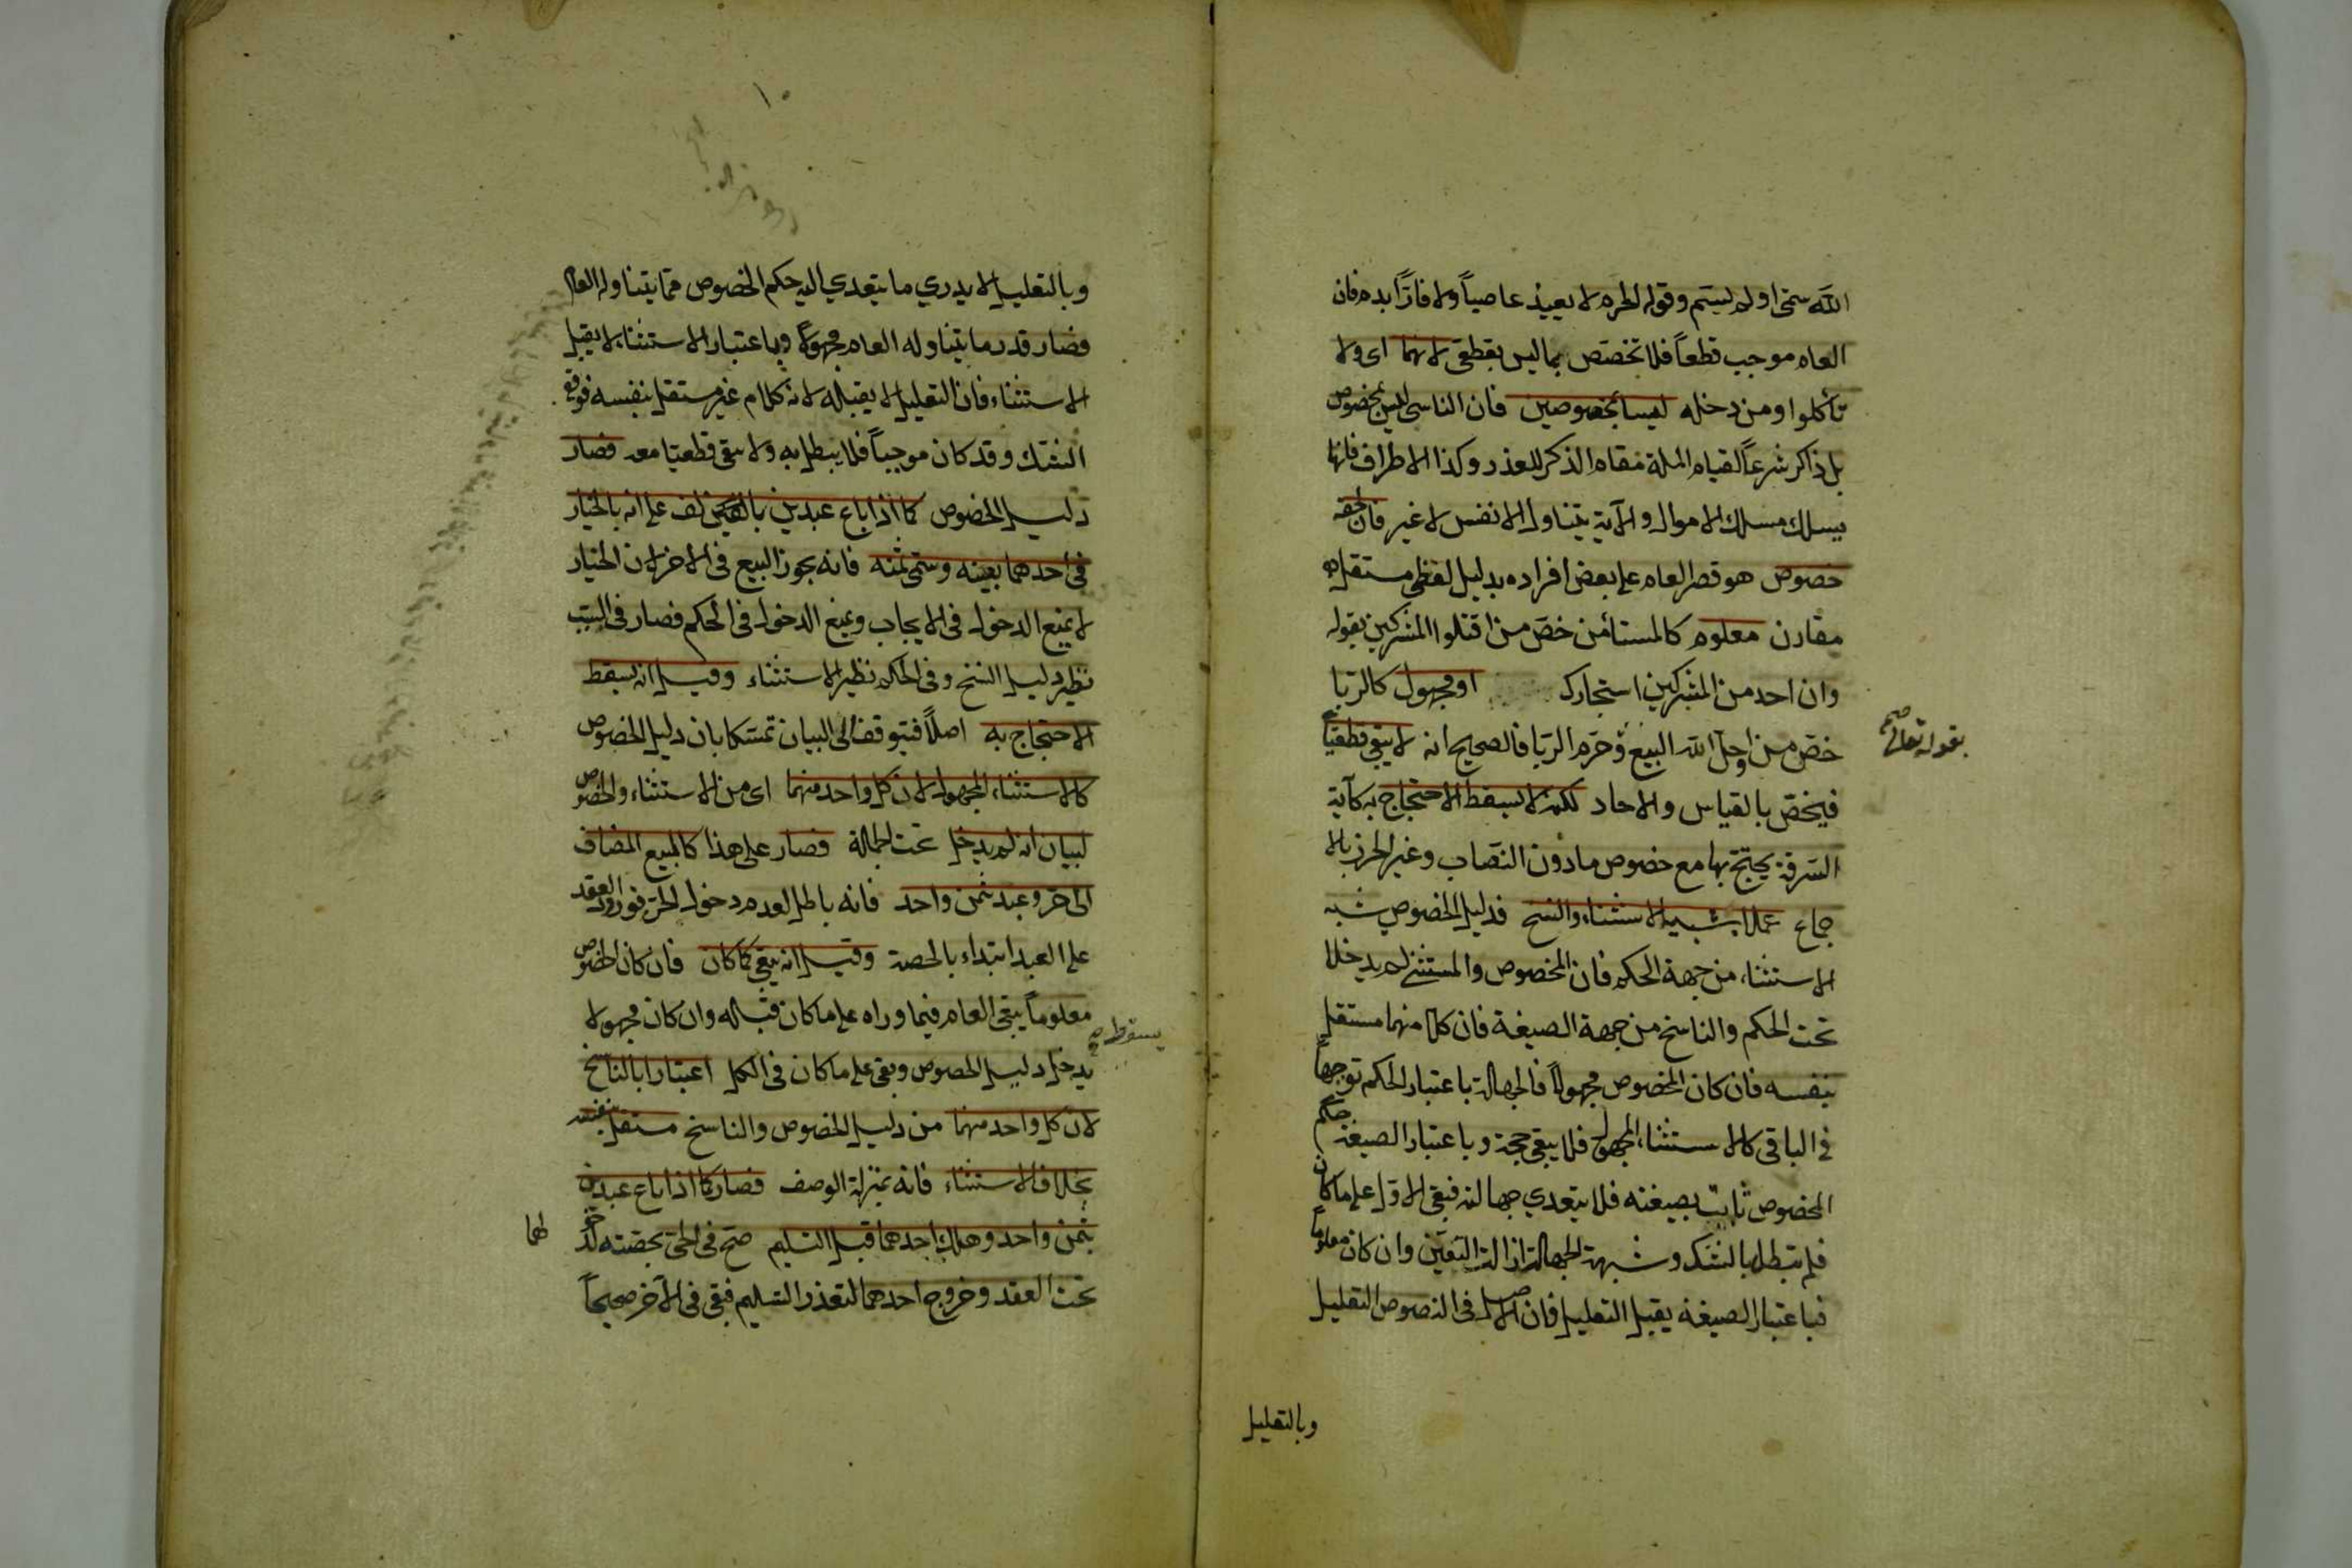 الله سمّى اولم يسم وقوله الحرم لا يعيذ عاصياً ولا فارّاً بدم فان
العام موجب قطعاً فلا تختص بما ليس بقطعى لانهما اى ولا
تأكلوا ومن دخله ليسا بمخصوصين فان الناسى ليس بمخصوص
بل ذاكر شرعاً لقيام الملة مقام الذكر للعذر وكذا الاطراف فانها
يسلك مسلك الاموال والآية يتناول الانفس لا غير فان لحقه
خصوص هو قصر العام على بعض افراده بدليل لفظى مستقل
مقارن معلوم كالمستأمن خصّ من اقتلوا المشركين بقوله
وان احد من المشركين استجارك او مجهول كالربا
خصّ من واحلّ الله البيع وحرّم الربا فالصحيح انه لا يبقى قطعيّاً
بقوله تعالى صح
فيخصّ بالقياس والاحاد لكنه لا يسقط الاحتجاج به كآية
السّرقة يحتجّ بها مع خصوص مادون النصاب وغير الحرز بالا
جماع عملا بشبيه الاستثناء والنسخ فدليل الخصوص شبه
الاستثناء من جهة الحكم فان المخصوص والمستثنى لم يدخلا
تحت الحكم والناسخ من جهة الصيغة فان كلا منهما مستقل
بنفسه فان كان المخصوص مجهولاً فالجهالة باعتبار الحكم توجب جهلاً
فى الباقى كالاستثناء المجهول فلا يبقى حجة وباعتبار الصيغة حكم
المخصوص ثابت بصيغته فلا يتعدي جهالته فبقى الاول على ماكان
فلم تبطل بالشك وشبهة الجهالة ازالت اليقين وان كان معلوماً
فباعتبار الصيغة يقبل التعليل فان الاصل فى النصوص التعليل
وبالتعليل
١٠
وبالتعليل لا يدري ما يتعدي اليه حكم الخصوص ممّا يتناوله العام
فصار قدر ما يتناوله العام مجهولاً وباعتبار الاستثناء لا يقبل
الاستثناء فان التعليل لا يقبله لانه كلام غير مستقل بنفسه فوقع
الشك وقد كان موجباً فلا يبطل به ولا يبقى قطعيّا معه فصار
دليل الخصوص كما اذا باع عبدين بالف على انه بالخيار
فى احدهما بعينه وسمّى ثمنه فانه يجوز البيع فى الاخر لان الخيار
لا يمنع الدخول فى الايجاب ويمنع الدخول فى الحكم فصار فى السبب
نظير دليل النسخ وفى الحكم نظير الاستثناء وقيل انه يسقط
الاحتجاج به اصلاً فيتوقف الى البيان تمسّكا بان دليل الخصوص
كالاستثناء المجهول لان كل واحد منهما اى من الاستثناء والخصوص
لبيان انه لم يدخل تحت الجملة فصار على هذا كالبيع المضاف
الى حرّ وعبد بثمن واحد فانه باطل لعدم دخول الحرّ فورود العقد
على العبد ابتداء بالحصة وقيل انه يبقى كما كان فان كان الخصوص
معلوماً يبقى العام فيما وراه على ماكان قبله وان كان مجهولا
يسقط صح
يدخل دليل الخصوص وبقى على ماكان فى الكل اعتبارا بالناسخ
لان كل واحد منهما من دليل الخصوص والناسخ مستقل بنفسه
بخلاف الاستثناء فانه بمنزلة الوصف فصار كما اذا باع عبدين
بثمن واحد وهلك احدهما قبل التسليم صح فى الحىّ بحصته لدخو
لهما
تحت العقد وخروج احدهما لتعذر التسليم فبقى فى الآخر صحيحاً